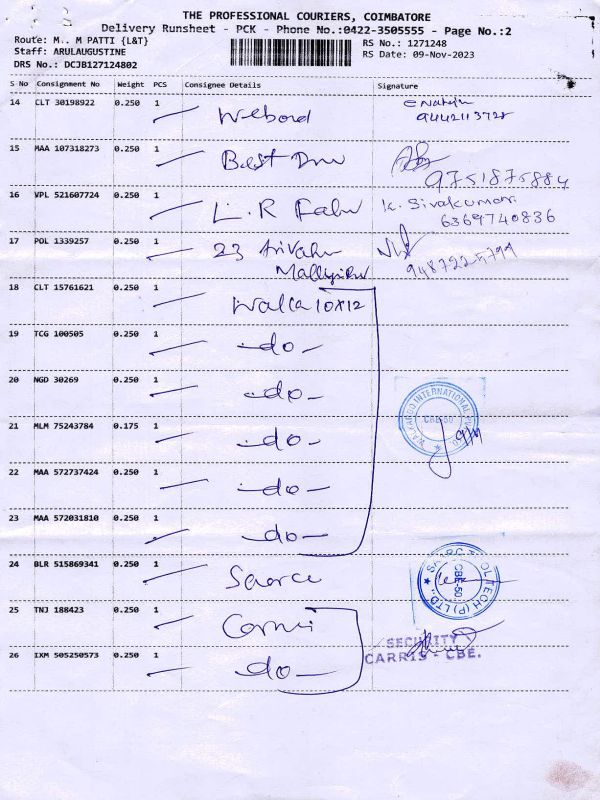 THE PROFESSIONAL COURIERS, COIMBATORE
Delivery Runsheet - PCK - Phone No.:0422-3505555 - Page No.:2
Route: M.. M PATTI {L&T}
RS No.: 1271248
Staff: ARULAUGUSTINE
RS Date: 09-Nov-2023
DRS No.: DCJB127124802
S No Consignment No Weight PCS Consignee Details Signature
14 CLT 30198922 0.250 1
9442113728
15 MAA 107318273 0.250 1 Best
9751875884
16 VPL 521607724 0.250 1 L.R K. Sivakumari
6369740836
17 POL 1339257 0.250 1 23
9487225799
18 CLT 15761621 0.250 1
19 TCG 100505 0.250 1 -do-
20 NGD 30269 0.250 1 -do-
WALKAROO INTERNATIONAL
CBE-50
21 MLM 75243784 0.175 1 -do-
22 MAA 572737424 0.250 1 -do-
23 MAA 572031810 0.250 1 -do-
24 BLR 515869341 0.250 1
CBE-50
TECH (P) LTD.
25 TNJ 188423 0.250 1
SECURITY
CARRIS - CBE.
26 IXM 505250573 0.250 1 -do-